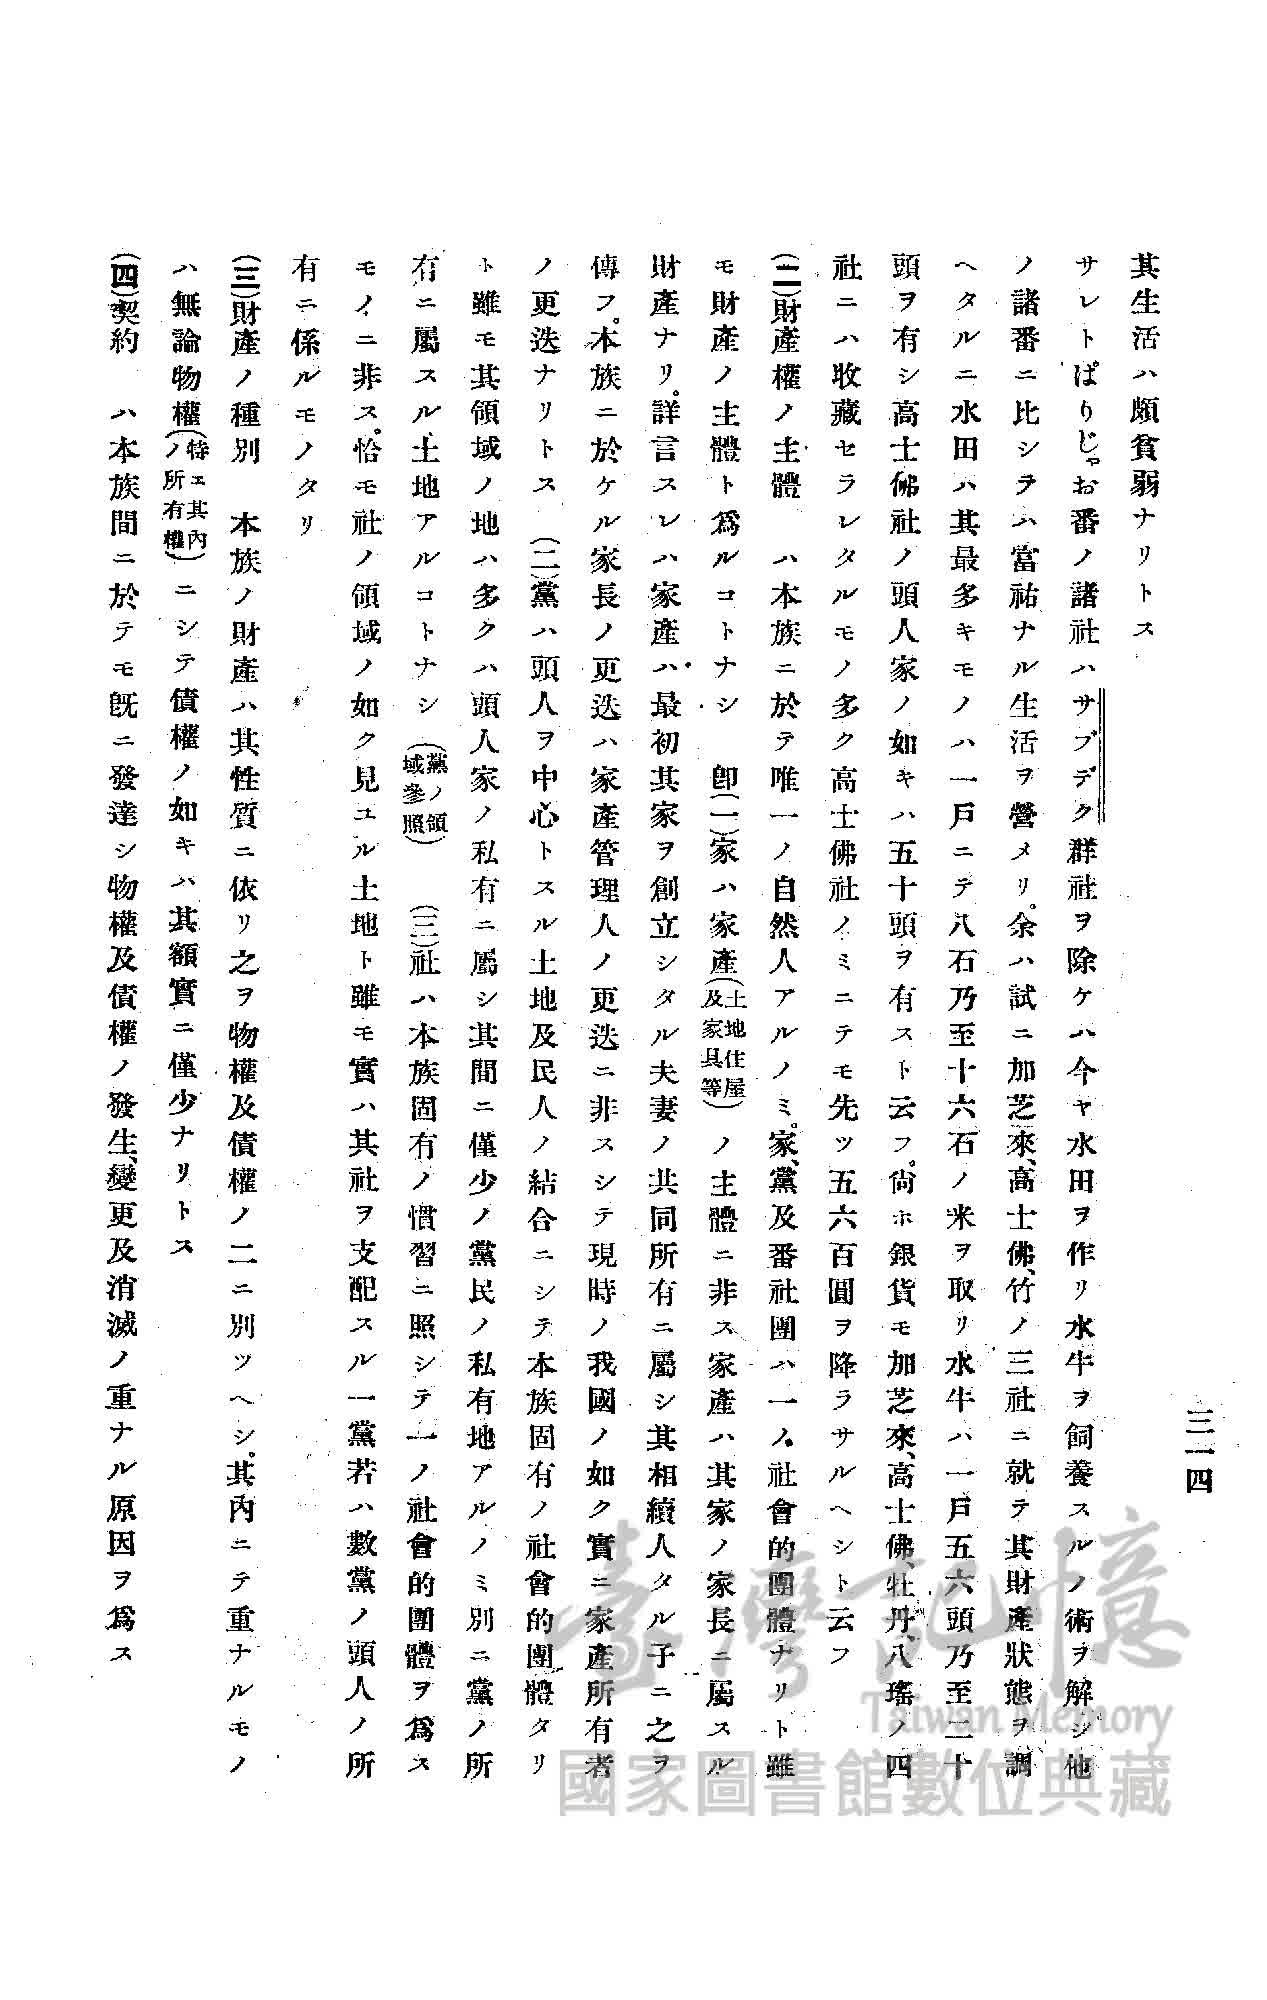 三一四
其生活ハ頗貧弱ナリトス
サレトぱりじゃお番ノ諸社ハサブデク群社ヲ除ケハ今ヤ水田ヲ作リ水牛ヲ飼養スルノ術ヲ解シ他
ノ諸番ニ比シテハ富祐ナル生活ヲ營メリ。余ハ試ニ加芝來、高士佛、竹ノ三社ニ就テ其財產狀態ヲ調
ヘタルニ水田ハ其最多キモノハ一戶ニテ八石乃至十六石ノ米ヲ取リ水牛ハ一戶五六頭乃至二十
頭ヲ有シ高士佛社ノ頭人家ノ如キハ五十頭ヲ有スト云フ。尙ホ銀貨モ加芝來、高士佛、牡丹、八瑤ノ四
社ニハ收藏セラレタルモノ多ク高士佛社ノミニテモ先ツ五六百圓ヲ降ラサルヘシト云フ
(二)財產權ノ主體　ハ本族ニ於テ唯一ノ自然人アルノミ。家、黨及番社團ハ一ノ社會的團體ナリト雖
モ財產ノ主體ト爲ルコトナシ　卽(一)家ハ家產(土地住屋及家具等)ノ主體ニ非ス家產ハ其家ノ家長ニ屬スル
財產ナリ。詳言スレハ家產ハ最初其家ヲ創立シタル夫妻ノ共同所有ニ屬シ其相續人タル子ニ之ヲ
傳フ。本族ニ於ケル家長ノ更迭ハ家產管理人ノ更迭ニ非スシテ現時ノ我國ノ如ク實ニ家產所有者
ノ更迭ナリトス　(二)黨ハ頭人ヲ中心トスル土地及民人ノ結合ニシテ本族固有ノ社會的團體タリ
ト雖モ其領域ノ地ハ多クハ頭人家ノ私有ニ屬シ其間ニ僅少ノ黨民ノ私有地アルノミ別ニ黨ノ所
有ニ屬スル土地アルコトナシ(黨ノ領域參照)　(三)社ハ本族固有ノ慣習ニ照シテ一ノ社會的團體ヲ爲ス
モノニ非ス。恰モ社ノ領域ノ如ク見ユル土地ト雖モ實ハ其社ヲ支配スル一黨若ハ數黨ノ頭人ノ所
有ニ係ルモノタリ
(三)財產ノ種別　本族ノ財產ハ其性質ニ依リ之ヲ物權及債權ノ二ニ別ツヘシ。其內ニテ重ナルモノ
ハ無論物權(特ニ其內ノ所有權)ニシテ債權ノ如キハ其額實ニ僅少ナリトス
(四)契約　ハ本族間ニ於テモ既ニ發達シ物權及債權ノ發生、變更及消滅ノ重ナル原因ヲ爲ス
臺灣記憶
Taiwan Memory
國家圖書館數位典藏